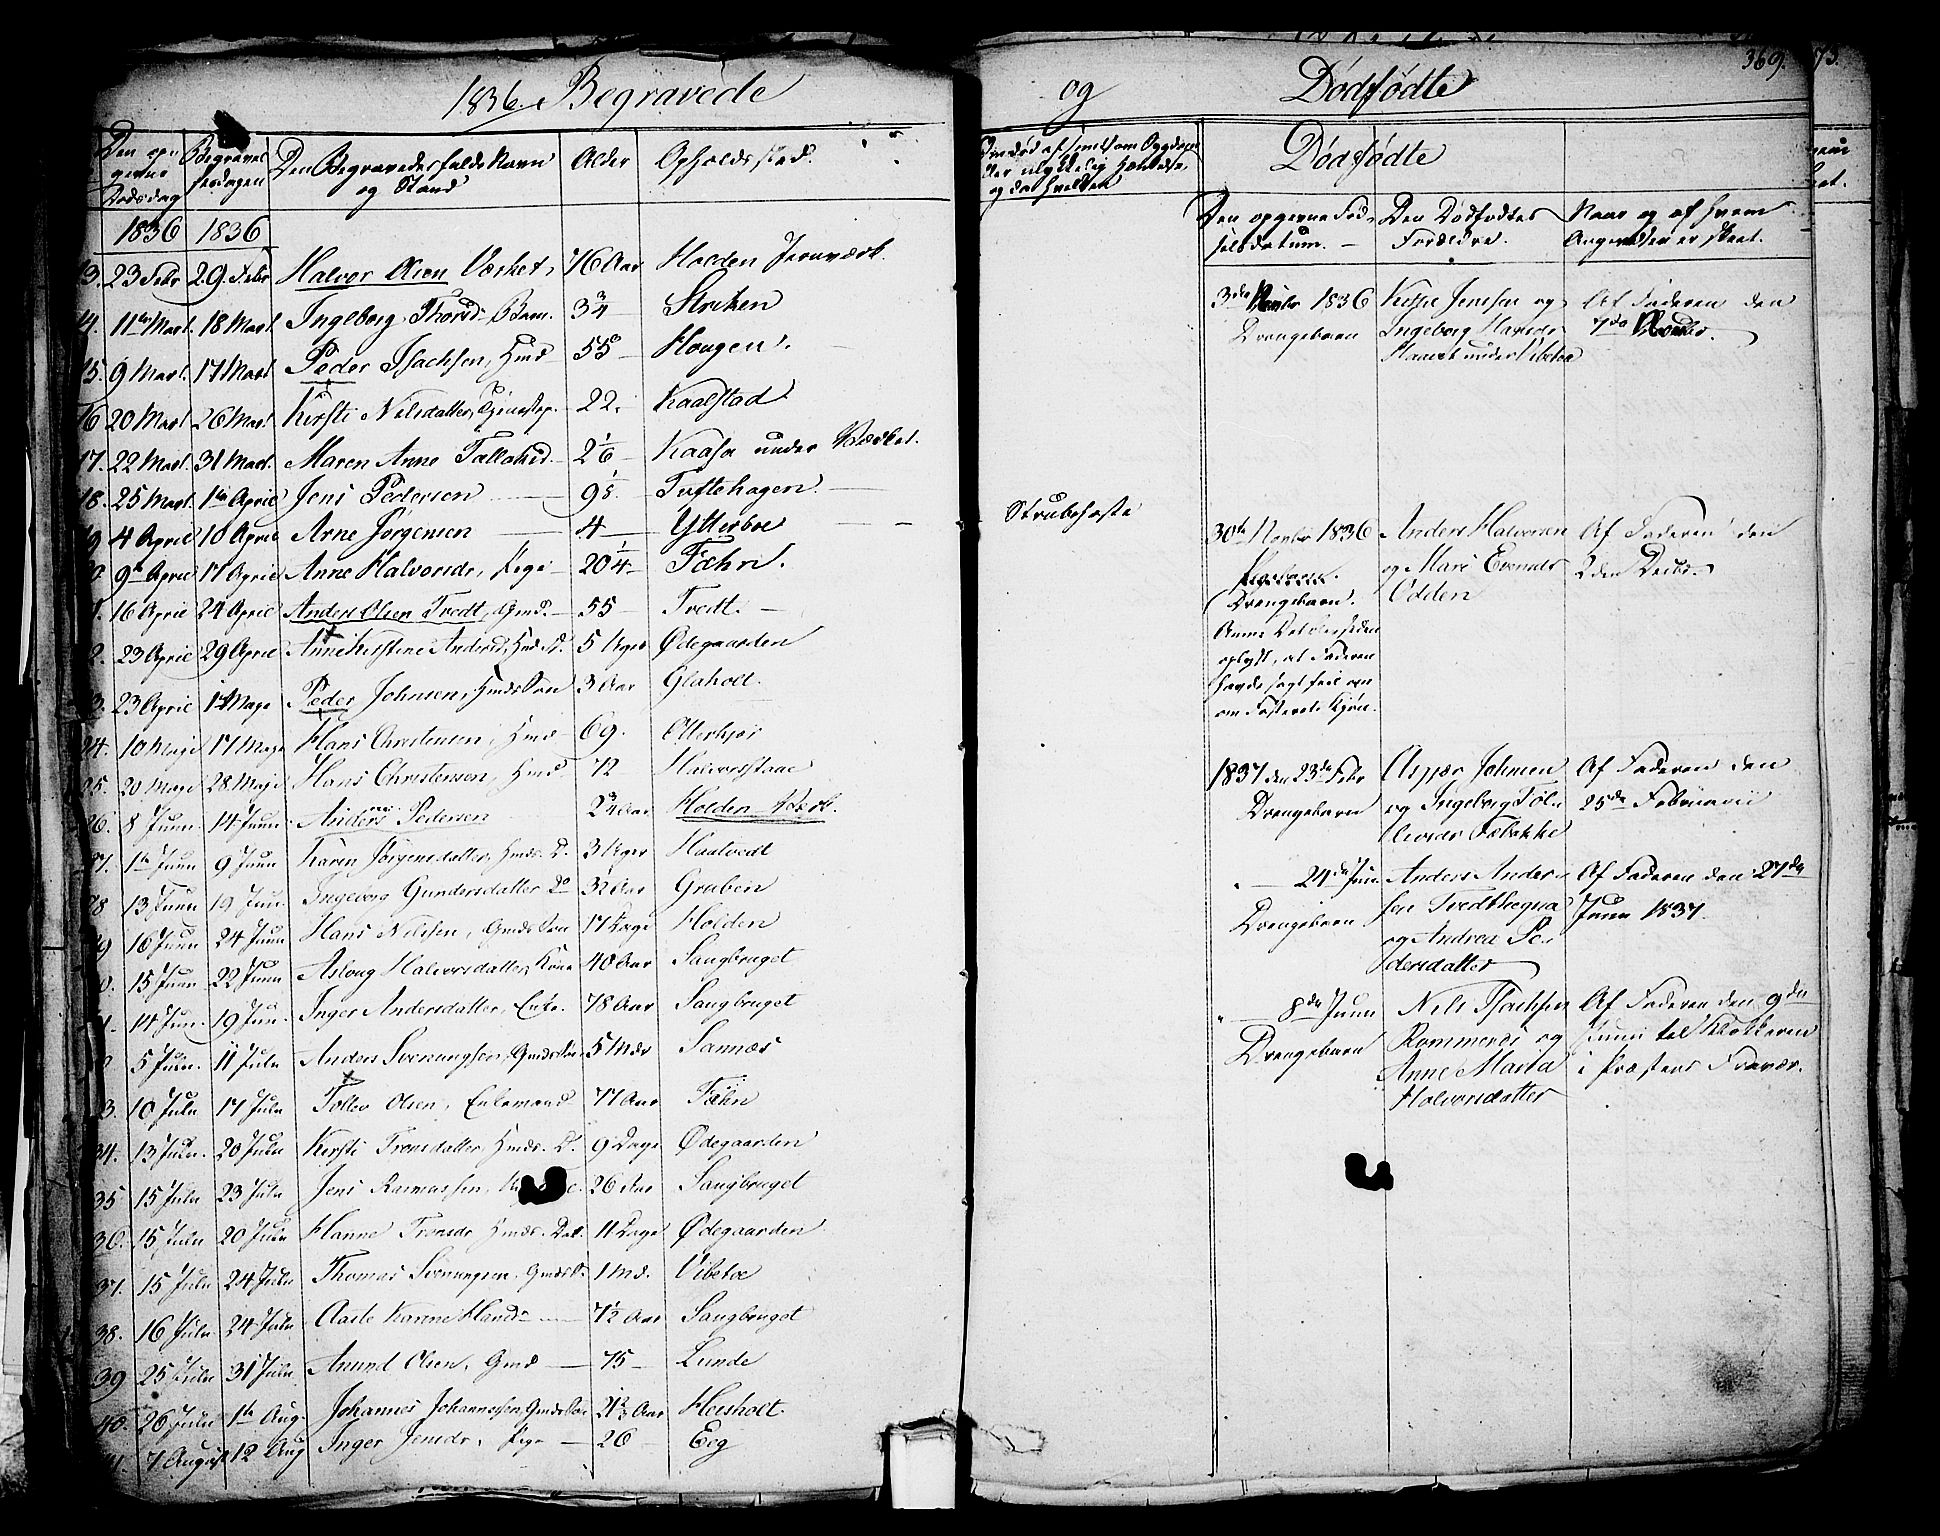 1836. Begravede
Den opgivne Dødsdag
Begravelsesdagen
Den Begravedes fulde Navn og Stand
Alder
Opholdssted.
1836 1836
13. 23 Febr 29. Febr Halvor Olsen Værket, 76 Aar Holden Jernværk.
14. 11te Mart. 18 Mart. Ingeborg Thorsd. Barn. 3¾ Striken
15. 9 Mart. 17 Mart Peder Isachsen, Hmd 55 Hougen.
16 20 Mart 26 Mart Kirsti Nilsdatter, 22. Kaalstad
17. 22 Mart 31 Mart. Maren Anne Tollefsd. 2 1/6 Kaasa under Værket.
18. 25 Mart. 1te April Jens Pedersen Tuftehagen.
19 4 April 10 April Arne Jørgensen 4 Ytterbøe
20. 9de April 17 April Anne Halvorsdr, Pige 20¼ Fæhn.
21. 16 April 24 April Anders Olsen Tvedt, Gmd. 55 Tvedt.
22. 23 April 29 April Anne Kirstine Andersd, Hmds D. 5 Uger Ødegaarden
23. 23 April 1te Maje Peder Johnsen, Hmds Søn 3 Aar Glaholt.
24. 10 Maje 17 Maje Hans Christensen, Hmd 69. Otterkjær
25. 20 Maje 28 Maje Hans Christensen, Hmd. 72 Halvorsstaae
26. 8 Juni. 14 Juni Anders Pedersen 2¾ Aar Holden Værk.
27. 1te Juni 9 Juni Karen Jørgensdatter, Hmds. D. 3 Uger Haatvedt
28 13 Juni 19 Juni. Ingeborg Gundersdatter Do 3½ Aar Gruben
29 16 Juni 24 Juni Hans Nilssen, Gmds Søn 17 Dage Holden
30. 15 Juni 22 Juni Aslaug Halvorsdatter, Kone 40 Aar Saugbruget
31. 14 Jun. 19 Jun. Inger Andersdatter, Enke. 78 Aar Saugbruget
32 5 Julii. 11 Julii Anders Svenungsen, Gmds Søn 5 Mdr Sannæs
33. 10 Julii 17 Julii Tollev Olsen, Enkemand 77 Aar Fæhn
34. 13 Julii. 20 Julii Kirsti Tronsdatter, Hmds. D. 9 Dage Ødegaarden
35 15 Julii 23 Julii Jens Rasmussen, 26 Aar Saugbruget
36. 15 Julii 20 Julii Hanne Tronsdr Hmds. Dat. 11 Dage Ødegaarden
37. 15 Julii 24 Julii Thomas Svenungsen. Gmds S. 1 Md. Vibetoe
38. 16 Julii 24 Julii Aaste Karine Hansd. 7½ Aar Saugbruget
39 25 Julii 31 Julii Amund Olsen, Gmd 75 Lunde
40. 26 Julii 1te Aug. Johannes Johannessen, Gmds Søn Aar Heisholt.
41. 7 August 12 Aug Inger Jensdr. Pige 26 Eeg
og Dødfødte
369.
73.
Om død af smitsom Sygdom eller ulykkelig Hændelse, og da hvilken
Strubehoste
Dødfødte
Den opgivne Fødselsdatum.
Den Dødfødtes Forældre.
Naar og af hvem Angivelsen er skeet.
3die 1836
Drengebarn
Jensen og
Ingeborg Hansdr
under Vibetoe
Af Faderen den
7de
30te Novbr 1836
Drengebarn.
oplyst, at Faderen
havde sagt feil om
om Fosterets Kjøn.
Anders Halvorsen
og Mari Evensdr
Odden
Af Faderen den
2den Decbr.
1837 den 23de Febr
Drengebarn
Asgjer Johnsen
og Ingeborg
Af Faderen den
25de Februarii
24de Juni
Drengebarn
Anders Ander-
sen Tvedthegna
og Andrea Pe-
dersdatter
Af Faderen den 27de
Juni 1837
8de Juni
Drengebarn
Nils Isachsen
Rommenes og
Anne Maria
Halvorsdatter
Af Faderen den 9de
Juni til Klokkeren
i Præstens Fravær.